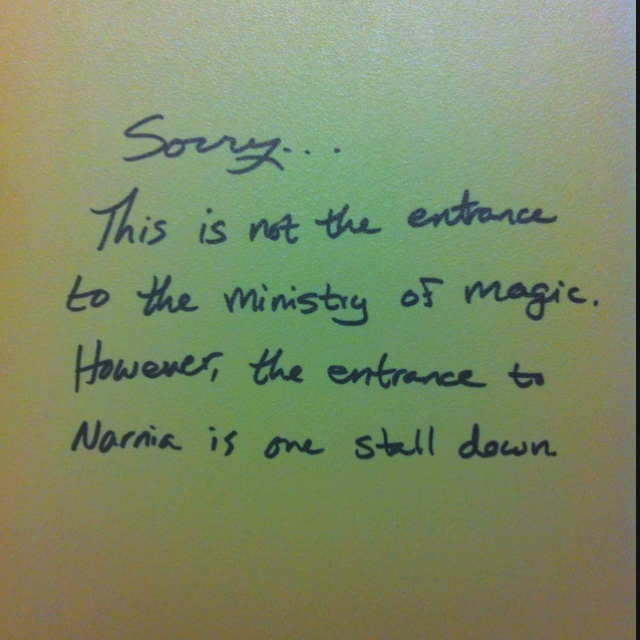 Sorry...
This is not the entrance
to the ministry of magic.
However, the entrance to
Narnia is one stall down